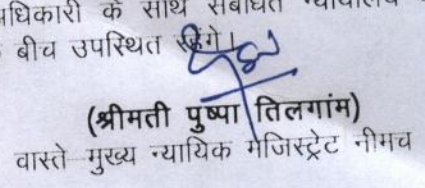 अधिकारी के साथ संबंधित न्यायालय
बीच उपस्थित रहेंगे।
(श्रीमती पुष्पा तिलगांम)
वास्ते मुख्य न्यायिक मजिस्ट्रेट नीमच